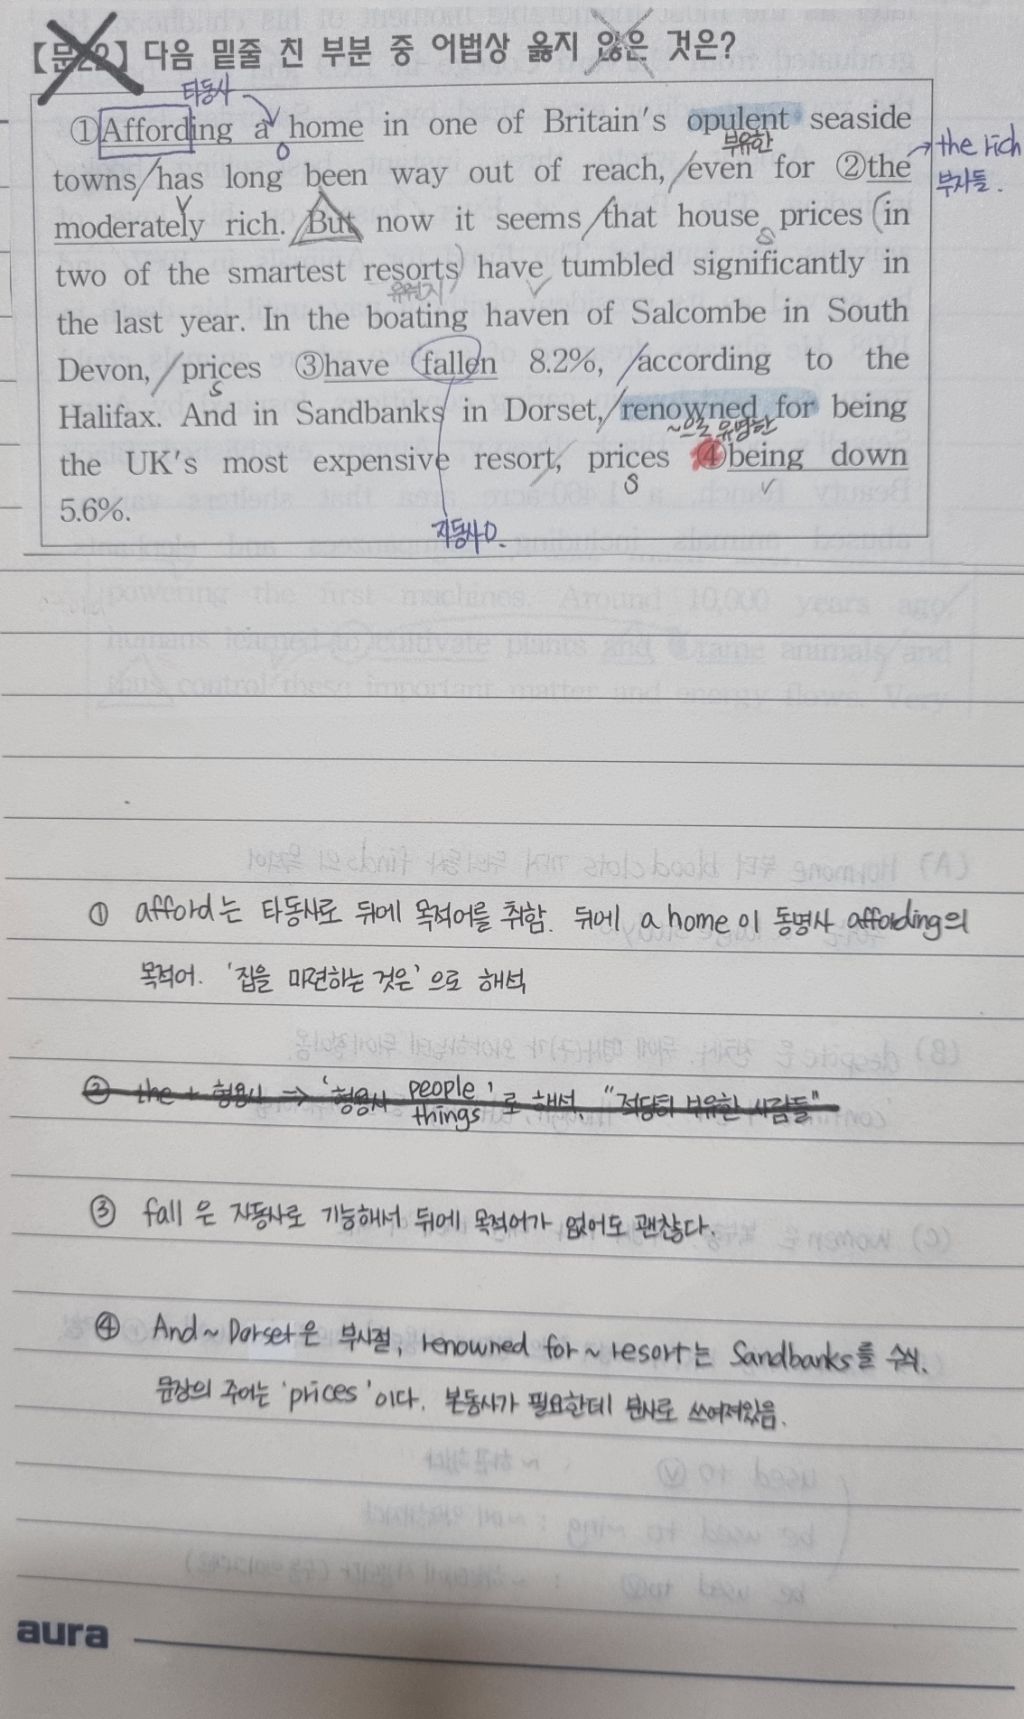 【문22】 다음 밑줄 친 부분 중 어법상 옳지 않은 것은?
타동사
①Affording a home in one of Britain's opulent seaside
부유한
the rich
부자들.
towns has long been way out of reach, even for ②the
moderately rich. But now it seems that house prices (in
S
two of the smartest resorts) have tumbled significantly in
유원지
the last year. In the boating haven of Salcombe in South
Devon, prices ③have fallen 8.2%, according to the
S
Halifax. And in Sandbanks in Dorset, renowned for being
~으로 유명한
the UK's most expensive resort, prices ④being down
S
V
5.6%.
자동사O.
① afford는 타동사로 뒤에 목적어를 취함. 뒤에 a home이 동명사 affording의
목적어. '집을 마련하는 것은'으로 해석
② the + 형용사 ⇒ '형용사 people/things'로 해석. "적당히 부유한 사람들"
③ fall은 자동사로 기능해서 뒤에 목적어가 없어도 괜찮다.
④ And ~ Dorset은 부사절, renowned for ~ resort는 Sandbanks를 수식.
문장의 주어는 'prices'이다. 본동사가 필요한데 분사로 쓰여져있음.
aura